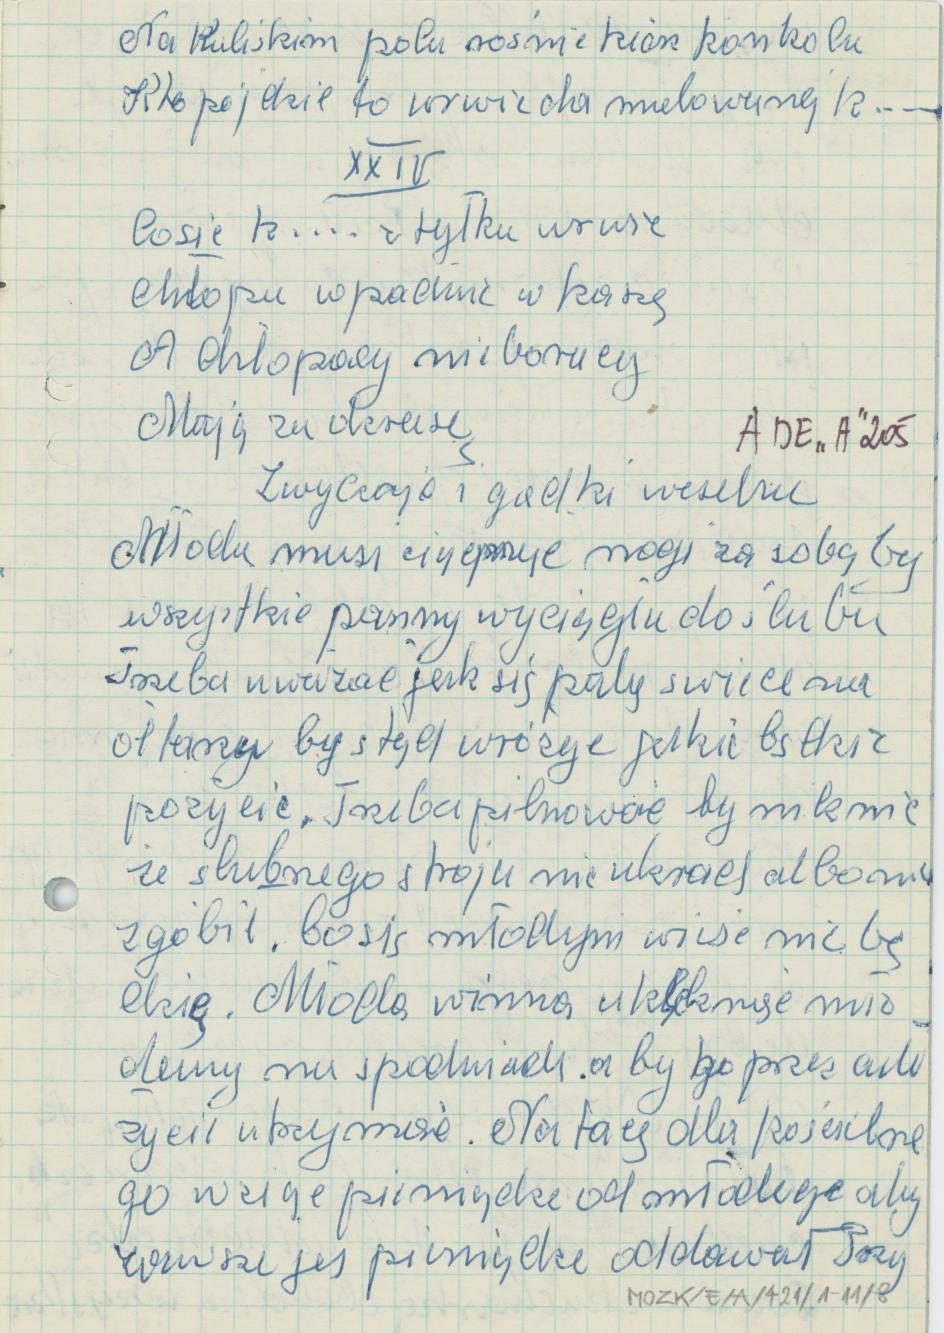 Na Kuliskim polu rośnie kiax konkolu
Kto pójdzie to urwie dla malowanej k....
XXIV
Cosie k..... z tyłku urwie
chłopu wpadnie w kaszę
A chłopacy nieboracy
Mają za okrasę
ADE "A" 205
Zwyczaje i gadki weselne
Młoda musi ciągnąć nogi za sobą by
wszystkie panny wyciągła do ślubu
Trzeba uważać jak się palą swiece na
ołtarzu by stąd wróżyć jakie będzie
pożycie. Trzeba pilnować by nik nic
ze slubnego stroju nie ukradł albo nie
zgóbił, bo się młodym wiesc nie bę
dzie. Młoda winna uklęknąć mło-
demu na spodniach. a by go przez całe
życie utrzymać. Na tacę dla kościelne
go wziąć pieniądze od młodego aby
zawsze jej pieniądze oddawał Przy
MOZK/E/A/421/1-11/8